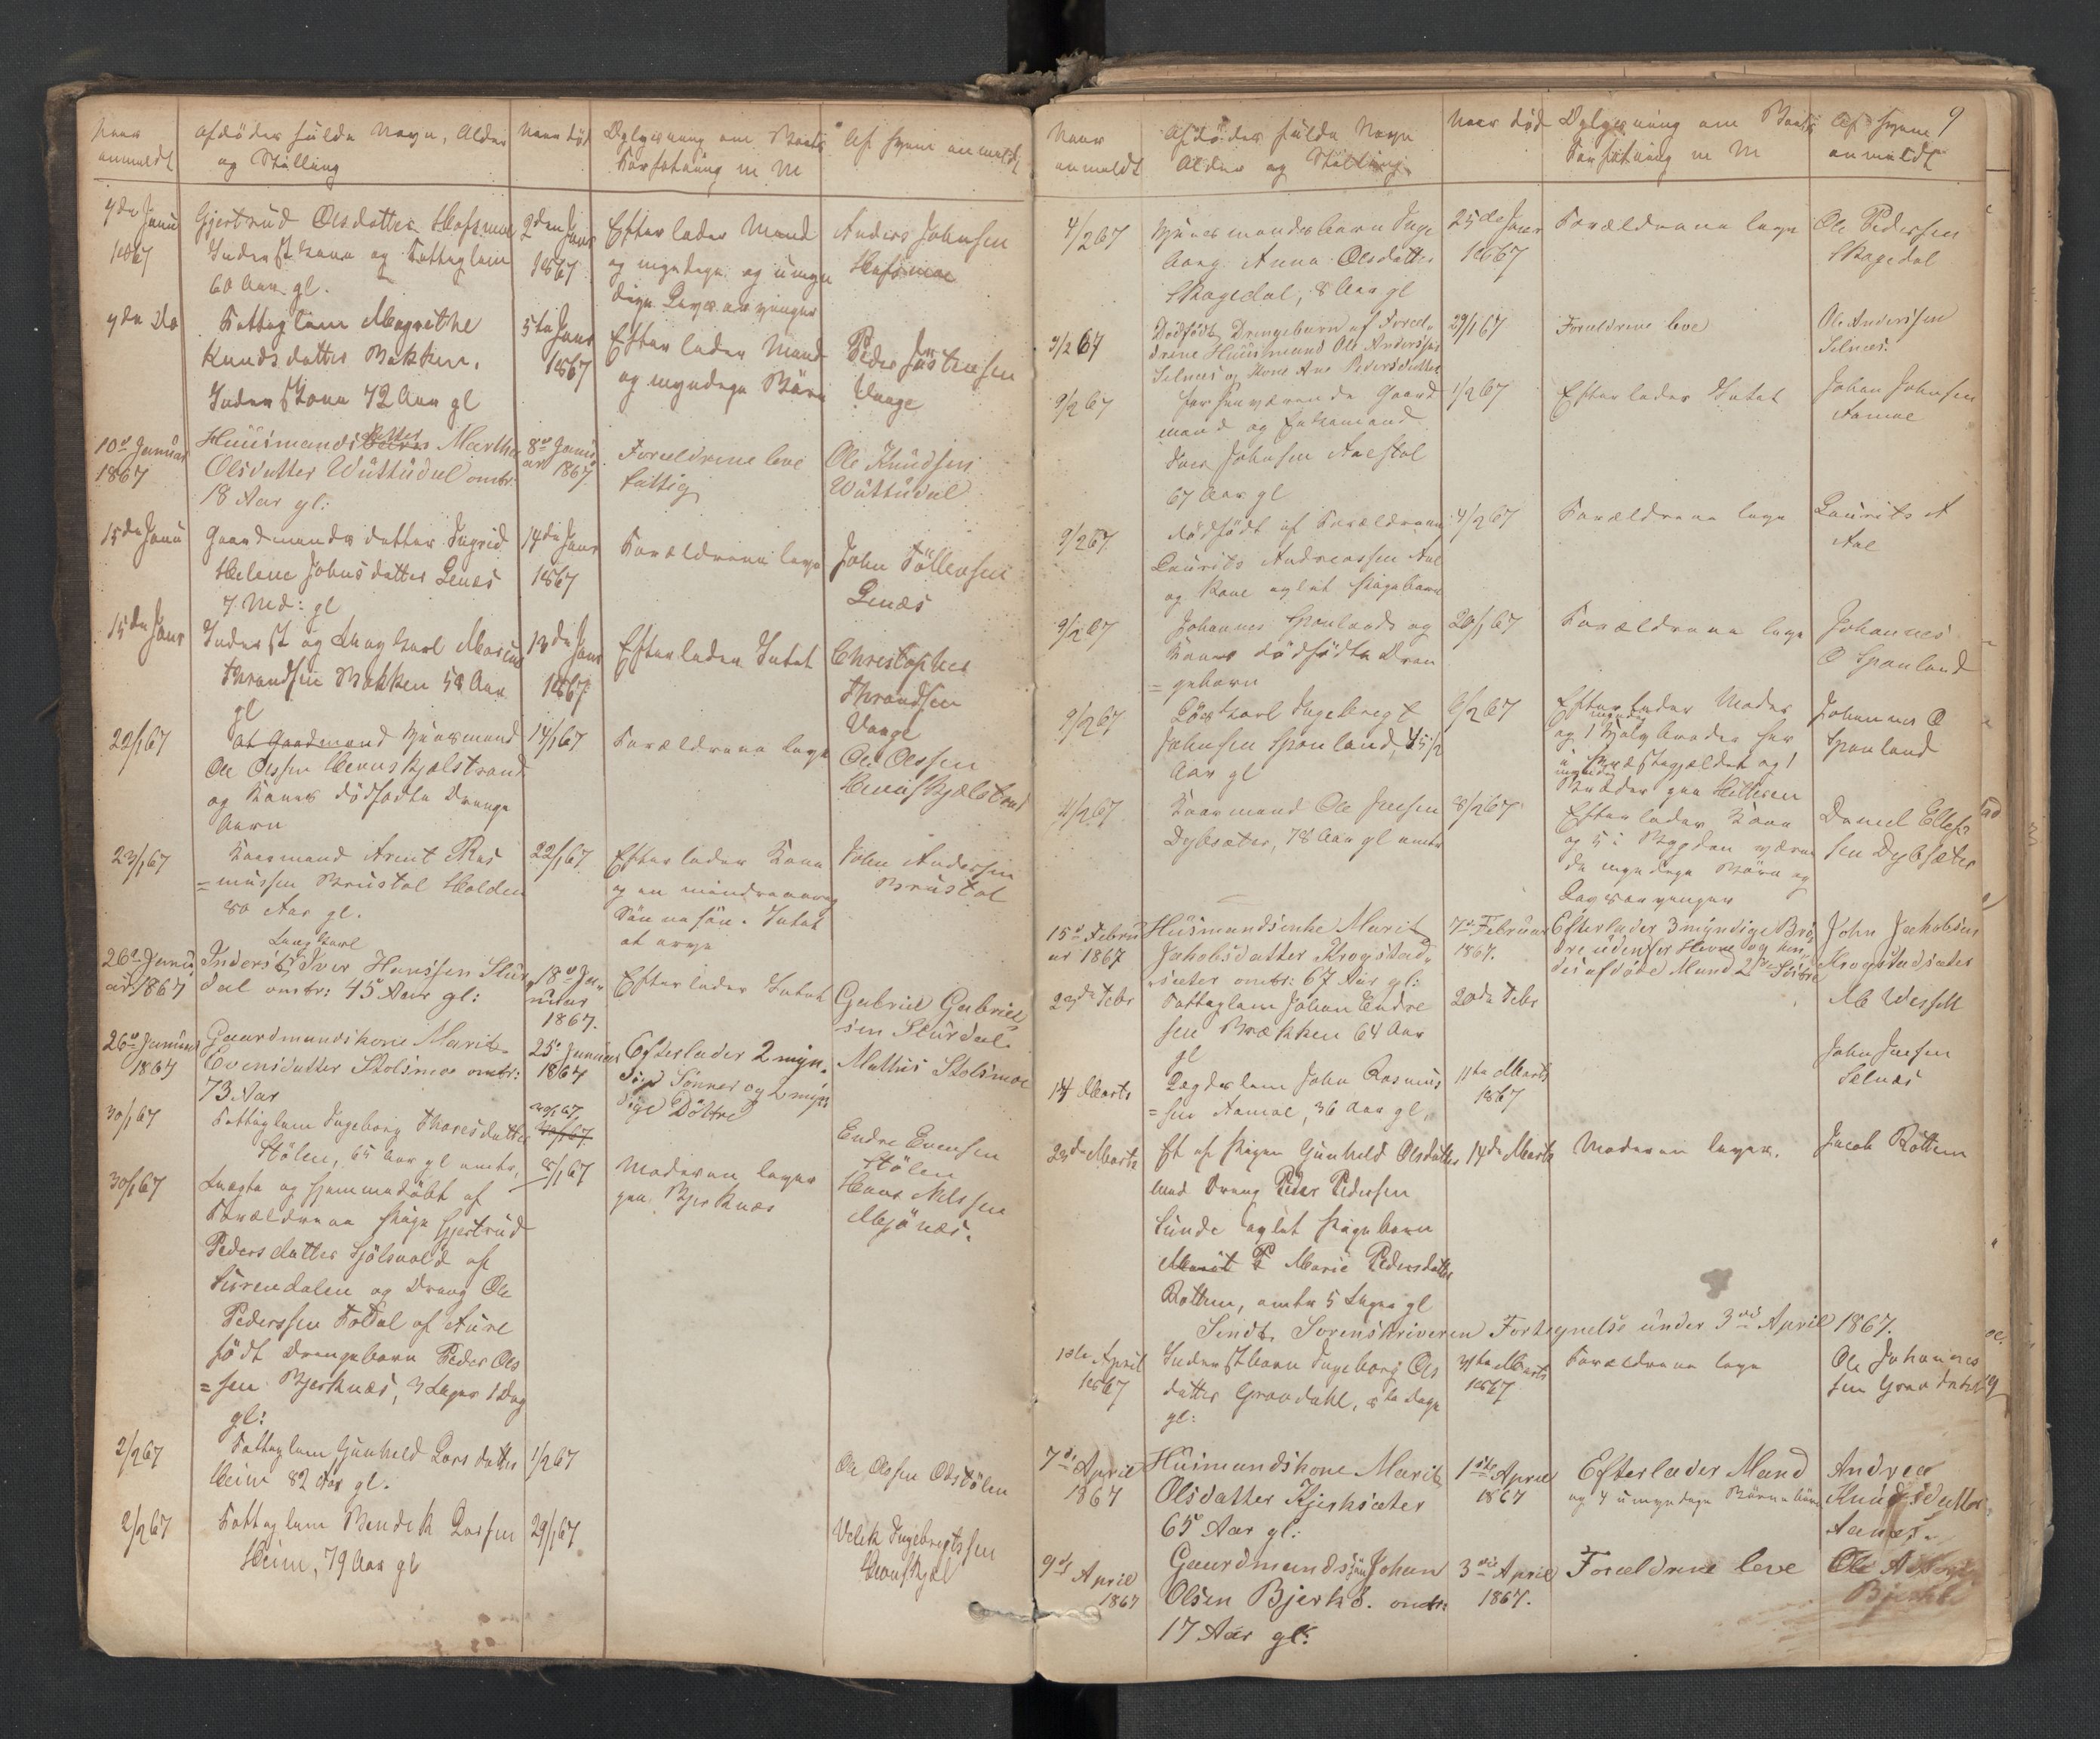 Naar
anmeldt
Afdødes fulde Navn, Alder
og Stilling
Naar død
Oplysning om Boets
Forfatning m M
Af hvem anmeldt
4de Janu
1867
Gjertrud Olsdatter Hafsmoe
Inderstkone og Fattiglem
60 Aar gl.
2den Janr
1867
Efterlader Mand
og myndige og umyn
dige Livsarvinger
Anders Johnsen
Hafsmoe
9de Do
Fattiglem Magrethe
Knudsdatter Bakken,
Inderstkone 72 Aar gl
5te Janr
1867
Efterlader Mand
og myndige Børn
Peder Justensen
Vaage
10de Januar
1867
Huusmandsdatter Marthe
Olsdatter Wuttudal omtr:
18 Aar gl:
8de Janu
ar 1867
Forældrene leve
fattig
Ole Knudsen
Wuttudal
15de Janu
Gaardmandsdatter Ingrid
Helene Johnsdatter Lenes
7 Md: gl
14de Janr
1867
Forældrene leve
John Tøllefsen
Lenæs
15de Janr
Inderst og Lægkarl Marius
Thrandsen Bakken 58 Aar
gl
13de Janr
1867
Efterlader Intet
Christopher
Thrandsen
Vaage
22/1 67
at Gaardmand Huusmand
Ole Olssen Hevnskjølstrand
og Kones dødfødte Drenge
barn
14/1 67
Forældrene leve
Ole Olssen
Hevnskjelstrand
23/1 67
Kaarmand Arent Ras
=mussen Brustøl Halden
80 Aar gl.
22/1 67
Efterlader Kone
og en mindreaarig
Sønnesøn. Intet
at arve
John Andersen
Brustøl
26de Janu
ar 1867
Lægkarl
Inderst Iver Hanssen Stur
dal omtr: 45 Aar gl:
18de Ja
nuar
1867.
Efterlader Intet
Gabriel Gabriel
sen Sturdal.
26de Januar
1867
Gaardmandskone Marit
Evensdatter Stolsmoe omtr:
73 Aar
25de Januar
1867
Efterlader 2 myn
dige Sønner og 2 myn
dige Døttre
Mathis Stolsmoe
30/1 67
Fattiglem Ingeborg Thoresdatter
Stølen, 65 Aar gl omtr,
Endre Evensen
Stølen
30/1 67
Uægte og hjemmedøbt af
Forældrene Pige Gjertrud
Pedersdatter Sjølsvold af
Surendalen og Dreng Ole
Pederssen Todal af Aure
født Drengebarn Peder Ols
=sen Bjerknes, 3 Uger 1 Dag
gl:
8/1 67
Moderen lever
paa Bjerknæs
Hans Nilssen
Mjønæs.
2/2 67
Fattiglem Gunhild Larsdatter
Heim 82 Aar gl.
1/2 67
Ole Olssen Odstølen
2/2 67
Fattiglem Bendik Larsen
Heim, 79 Aar gl
29/1 67
Velik Ingebrigtssen
Hevnskjel
9
Naar
anmeldt
Afdødes fulde Navn
Alder og Stilling
Naar død
Oplysning om Boets
Forfatning m M
Af hvem
anmeldt
4/2 67
Huusmandsbarn Inge
borg Anna Olsdatter
Skagedal, 8 Aar gl
25de Janr
1867
Forældrene leve
Ole Pedersen
Skagedal
9/2 67
Dødfødt Drengebarn af Foræl
drene Huusmand Ole Anderssen
Selnæs og Kone Ane Pedersdatter
29/1 67
Forældrene leve
Ole Anderssen
Selnæs.
9/2 67
forhenværende Gaard
mand og Enkemand
Iver Johnsen Aalstøl
67 Aar gl
1/2 67
Efterlader Intet
Johan Johnsen
Aamoe
9/2 67
dødfødt af Forældrene
Laurits Andreassen Aae
og Kone avlet Pigebarn
4/2 67
Forældrene leve
Laurits A
Aae
9/2 67
Johannes Spanlands og
Kones dødfødte Dren
=gebarn
20/1 67
Forældrene leve
Johannes
O Spanland
9/2 67
Løskarl Ingebrigt
Johnsen Spanland, 45 1/2
Aar gl
6/2 67
Efterlader Moder
og 1 myndig Halvbroder her
i Præstegjældet og 1
myndig Broder paa Hitteren
Johannes O
Spanland
11/2 67
Kaarmand Ole Jensen
Dybsæter, 78 Aar gl omtr
8/2 67
Efterlader Kone
og 5 i Bygden væren
de myndige Børn og
Livsarvinger
Daniel Ellef
sen Dybsæter
15de Febru
ar 1867
Husmandsenke Marit
Jakobsdatter Krogstad
sæter omtr: 67 Aar gl:
7de Februar
1867.
Efterlader 3 myndige Brø
dre udenfor Hevne og hen
des afdøde Mand 2de Søstre
John Jakobsen
Krogstadsæter
23de Febr
Fattiglem Johan Endre
sen Brækken 64 Aar
gl
20de Febr
M Wessel
14 Marts
Lægdslem John Rasmus
=sen Aamoe, 36 Aar gl,
11te Marts
1867
John Jensen
Selnæs
23de Marts
Et af Pigen Gunhild Olsdatter
med Dreng Peder Pedersen
Sunde avlet Pigebarn
Marit P Marie Pedersdatter
Rottem, omtr 5 Uger gl
14de Marts
Moderen lever.
Jacob Rottem
Sendt Sorenskriveren Fortegnelse under 3die April 1867.
1ste April
1867
Inderstbarn Ingeborg Ols
datter Graodahl, 8te Dage
gl:
31te Marts
1867
Forældrene leve
Ole Johannes
sen Graodahl
7de April
1867
Husmandskone Marit
Olsdatter Kjerksæter
65 Aar gl:
1ste April
1867
Efterlader Mand
og 4 umyndige Børnebørn
Andrea
Knudsdatter
Aanes.
9de April
1867
Gaardmandssøn Johan
Olsen Bjerkø. omtr:
17 Aar gl:
3die April
1867.
Forældrene leve
Ole
Bjerkø